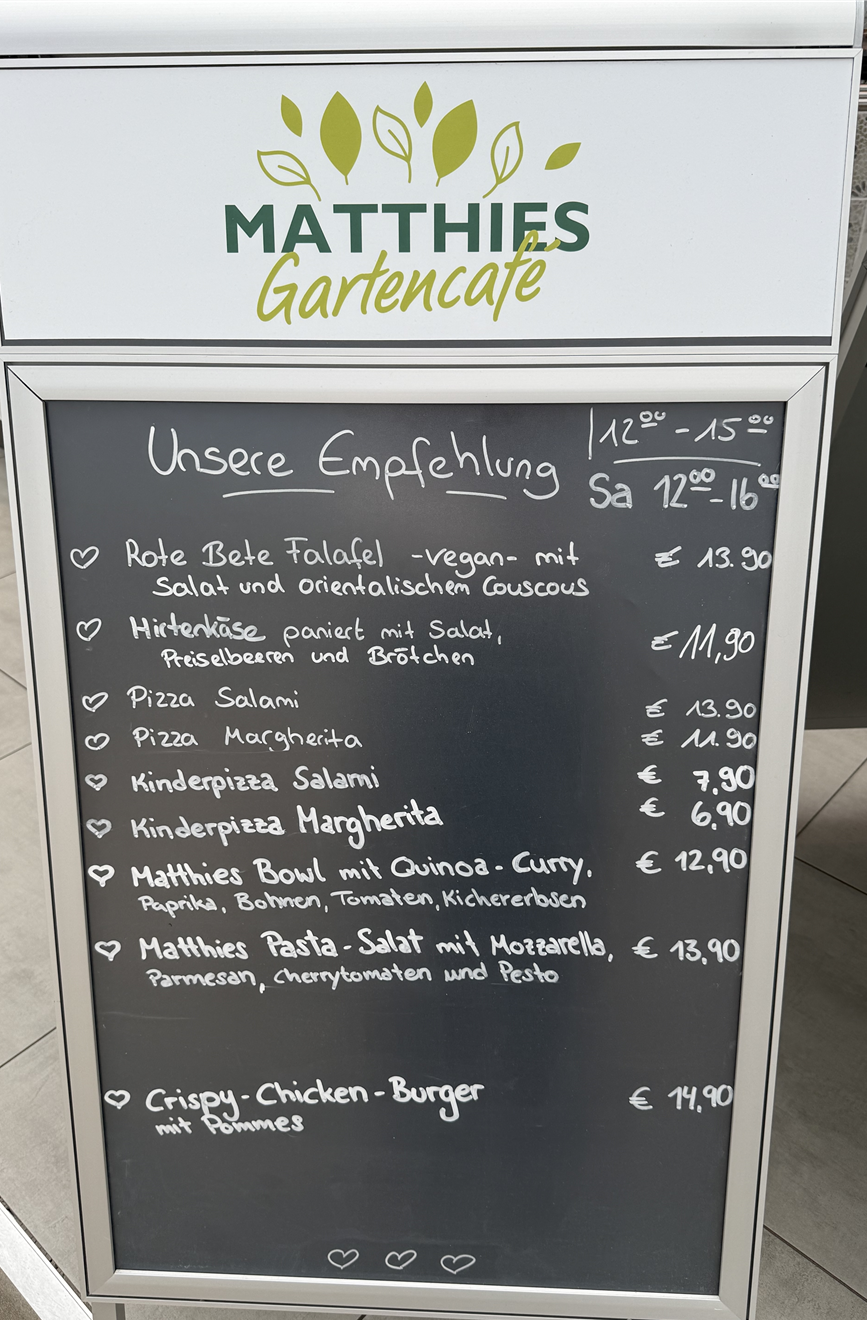 MATTHIES
Gartencafé
Unsere Empfehlung
12⁰⁰ - 15⁰⁰
Sa 12⁰⁰ - 16⁰⁰
Rote Bete Falafel -vegan- mit € 13.90
Salat und orientalischem Couscous
Hirtenkäse paniert mit Salat, € 11,90
Preiselbeeren und Brötchen
Pizza Salami € 13.90
Pizza Margherita € 11.90
Kinderpizza Salami € 7,90
Kinderpizza Margherita € 6,90
Matthies Bowl mit Quinoa-Curry, € 12,90
Paprika, Bohnen, Tomaten, Kichererbsen
Matthies Pasta-Salat mit Mozzarella, € 13,90
Parmesan, Cherrytomaten und Pesto
Crispy-Chicken-Burger € 14,90
mit Pommes